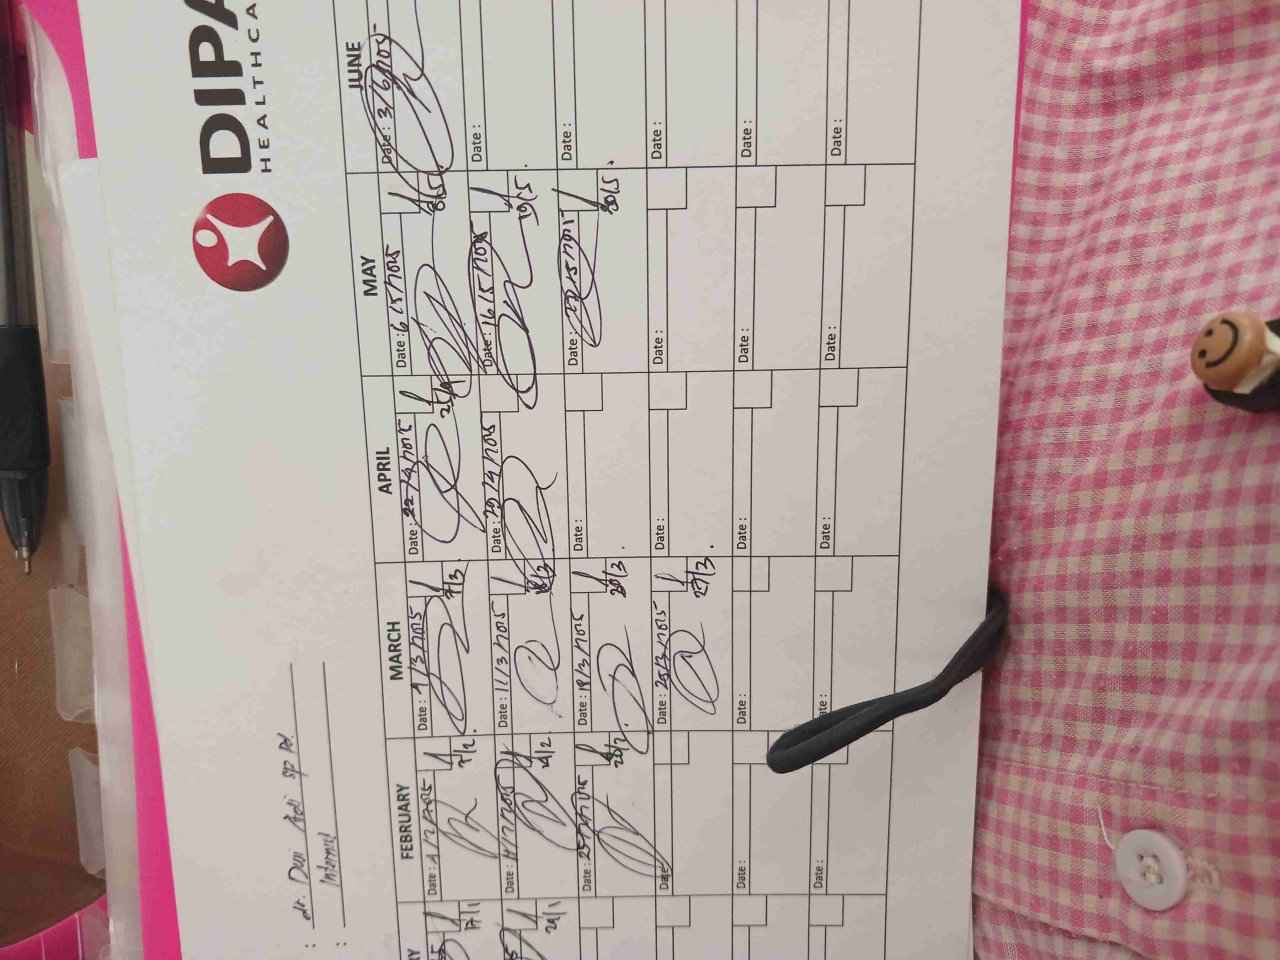 DIPA
HEALTHCA
: dr. Dwi Adi Sp Pd.
: Internal
RY FEBRUARY MARCH APRIL MAY JUNE
17/1
Date : 4/2/2025 7/2
Date : 4/3/2025 7/3
Date : 22/4/2025 25/4
Date : 6/5/2025
Date : 3/6/2025
24/1
Date :
Date : 11/3/2025
Date : 29/4/2025
Date : 16/5/2025 19/5
Date :
Date :
Date : 19/3/2025
Date :
Date : 30/5
Date :
Date :
Date : 25/3/2025 27/3
Date :
Date :
Date :
Date :
Date :
Date :
Date :
Date :
Date :
ate :
Date :
Date :
Date :